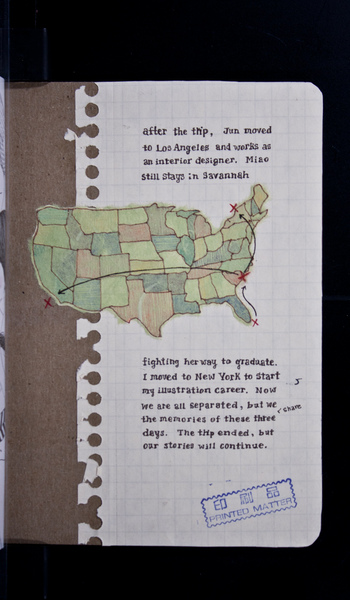 after the trip, Jun moved
to Los Angeles and works as
an interior designer. Miao
still stays in Savannah
fighting her way to graduate.
I moved to New York to start
my illustration career. Now
we are all separated, but we
share
the memories of these three
days. The trip ended, but
our stories will continue.
印刷品
PRINTED MATTER